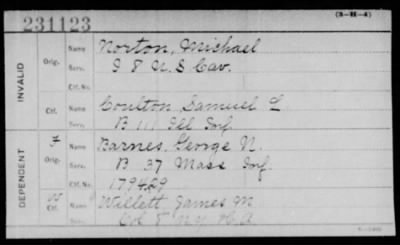 (3-H-4)
231123
INVALID
Orig. Name Norton, Michael
Serv. I 8 U.S Cav.
Ctf. No.
Ctf. Name Coulton, Samuel L
Serv. B 111 Ill Inf.
DEPENDENT
Orig. Name Barnes, George N.
Serv. B 37 Mass Inf.
Ctf. No. 179429
Ctf. Name Willett, James M
Serv. Col 8 N.Y. H.A.